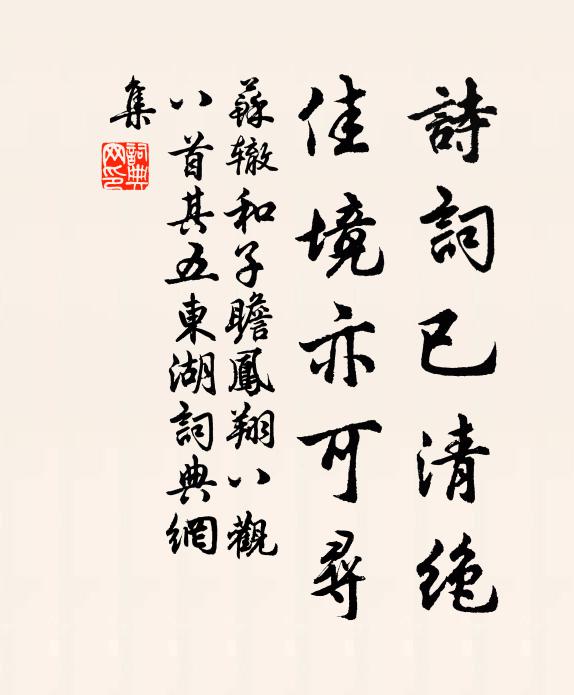 詩詞已清絶
佳境亦可尋
蘇辙和子瞻鳳翔八觀
八首其五東湖詞典網
集
詞典
网印